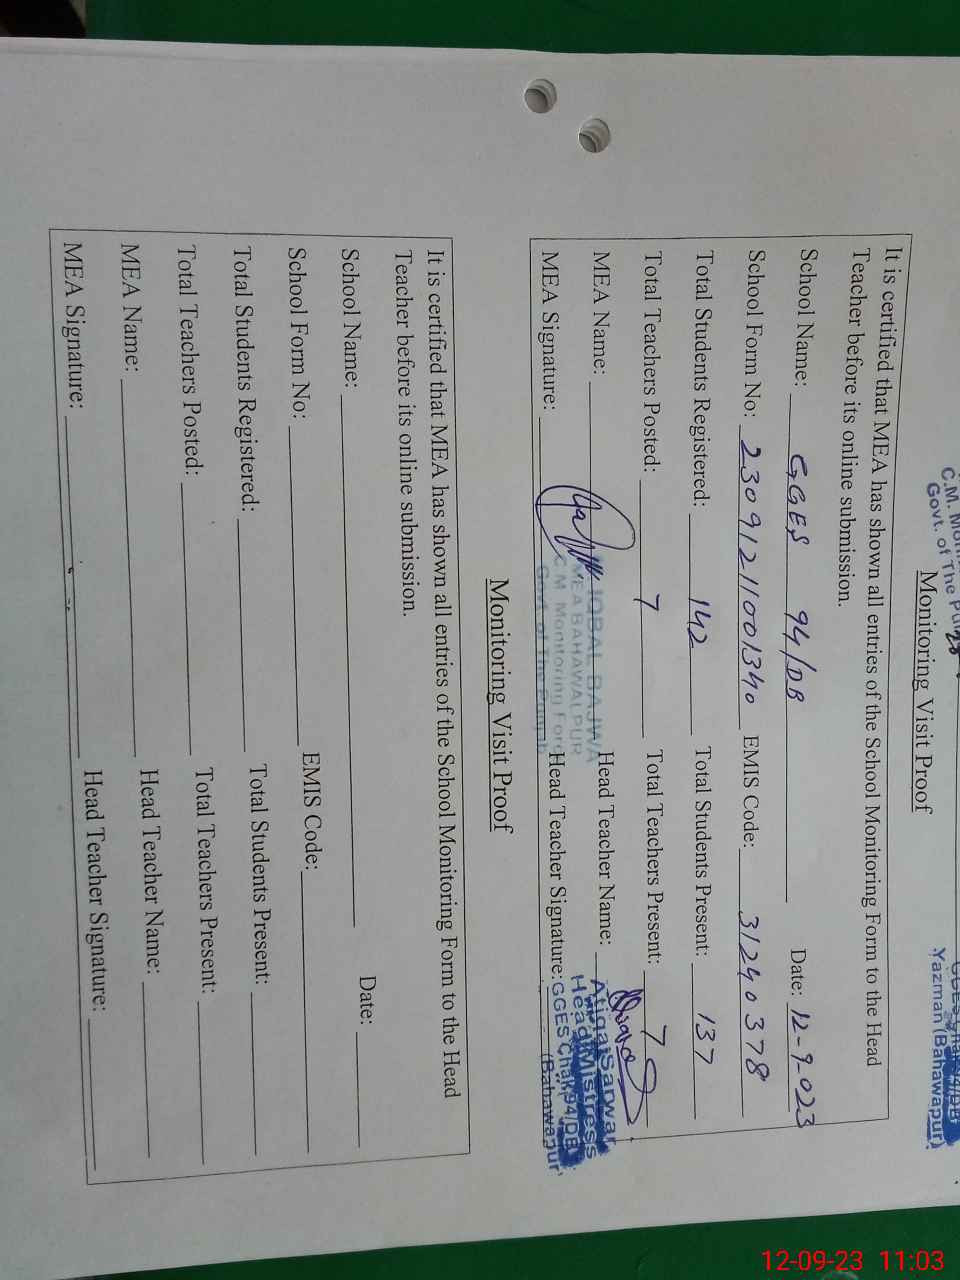 C.M. Moni
Govt. of The Pun
GGES Chak 94/DB
Yazman (Bahawapur)
Monitoring Visit Proof
It is certified that MEA has shown all entries of the School Monitoring Form to the Head
Teacher before its online submission.
School Name: GGES 94/DB Date: 12-9-023
School Form No: 23091211001340 EMIS Code: 31240378
Total Students Registered: 142 Total Students Present: 137
Total Teachers Posted: 7 Total Teachers Present: 7
MEA Name: IQBAL BAJWA Head Teacher Name: Atiqa Sarwar
MEA BAHAWALPUR Head Mistress
MEA Signature: C.M. Monitoring Force Head Teacher Signature: GGES Chak 94/DB
Govt. of The Punjab (Bahawapur)
Monitoring Visit Proof
It is certified that MEA has shown all entries of the School Monitoring Form to the Head
Teacher before its online submission.
School Name: Date:
School Form No: EMIS Code:
Total Students Registered: Total Students Present:
Total Teachers Posted: Total Teachers Present:
MEA Name: Head Teacher Name:
MEA Signature: Head Teacher Signature:
12-09-23 11:03